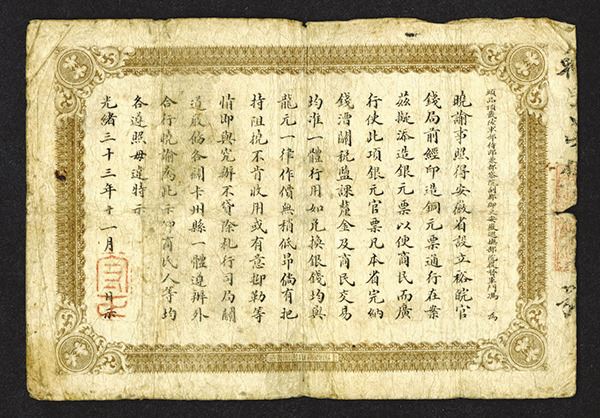 品頂戴陸軍部侍郎兼都察院副都御史安徽巡撫部院提督軍門馮 為
曉諭事照得安徽省設立裕皖官
錢局前經印造銅元票通行在案
茲擬添造銀元票以便商民而廣
行使此項銀元官票凡本省完納
錢漕關稅鹽課釐金及商民交易
均准一體行用如兌換銀錢均與
龍元一律作價無稍低昂倘有把
持阻撓不肯收用或有意抑勒等
情即與究辦不貸除札行司局關
道嚴飭各關卡州縣一體遵辦外
合行曉諭為此示仰商民人等均
各遵照毋違特示
光緒三十三年十一月 日示